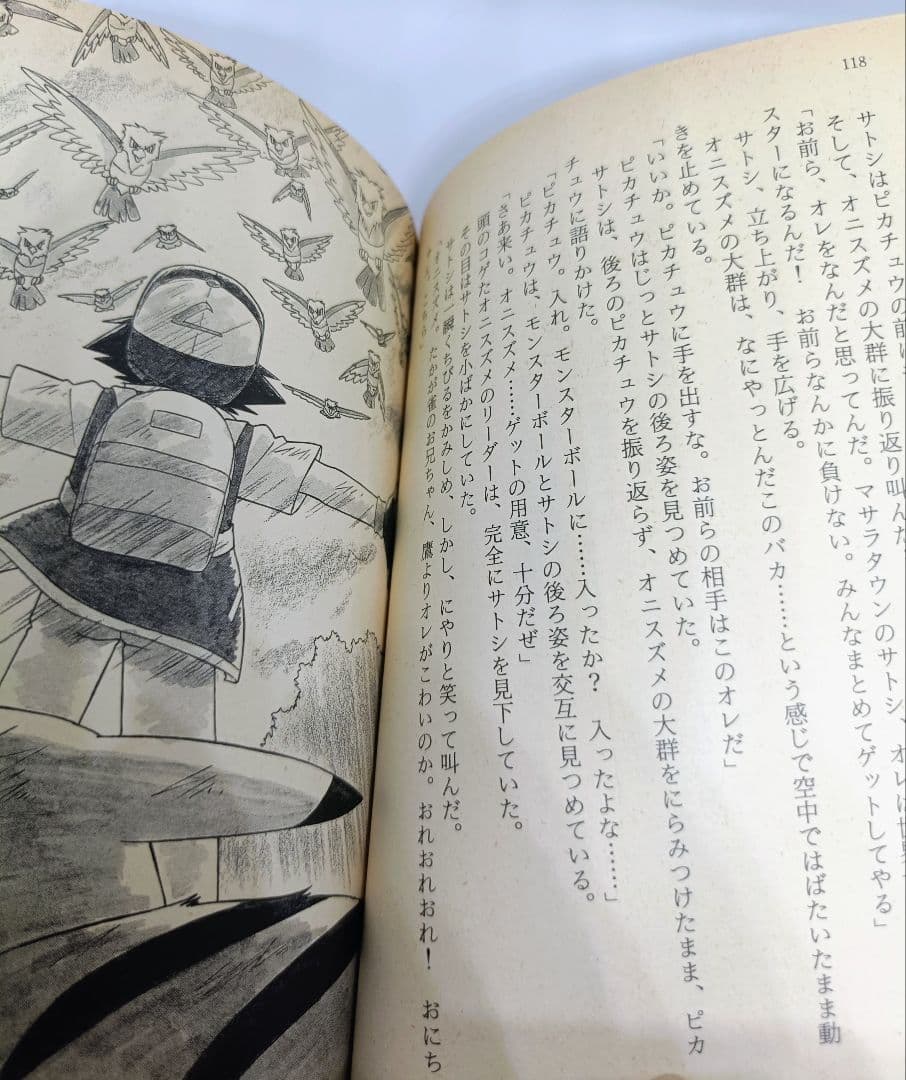 118
サトシはピカチュウの前に
そして、オニスズメの大群に振り返り叫んだ
「お前ら、オレをなんだと思ってんだ。マサラタウンのサトシ、オレは世界一
スターになるんだ！　お前らなんかに負けない。みんなまとめてゲットしてやる」
サトシ、立ち上がり、手を広げる。
オニスズメの大群は、なにやっとんだこのバカ……という感じで空中ではばたいたまま動
きを止めている。
「いいか。ピカチュウに手を出すな。お前らの相手はこのオレだ」
ピカチュウはじっとサトシの後ろ姿を見つめていた。
サトシは、後ろのピカチュウを振り返らず、オニスズメの大群をにらみつけたまま、ピカ
チュウに語りかけた。
「ピカチュウ。入れ。モンスターボールに……入ったか？　入ったよな……」
ピカチュウは、モンスターボールとサトシの後ろ姿を交互に見つめている。
「さあ来い。オニスズメ……ゲットの用意、十分だぜ」
頭のコゲたオニスズメのリーダーは、完全にサトシを見下していた。
その目はサトシを小ばかにしていた。
サトシは、一瞬くちびるをかみしめ、しかし、にやりと笑って叫んだ。
「オニスズメ。たかが雀のお兄ちゃん、鷹よりオレがこわいのか。おれおれおれ！　おにち